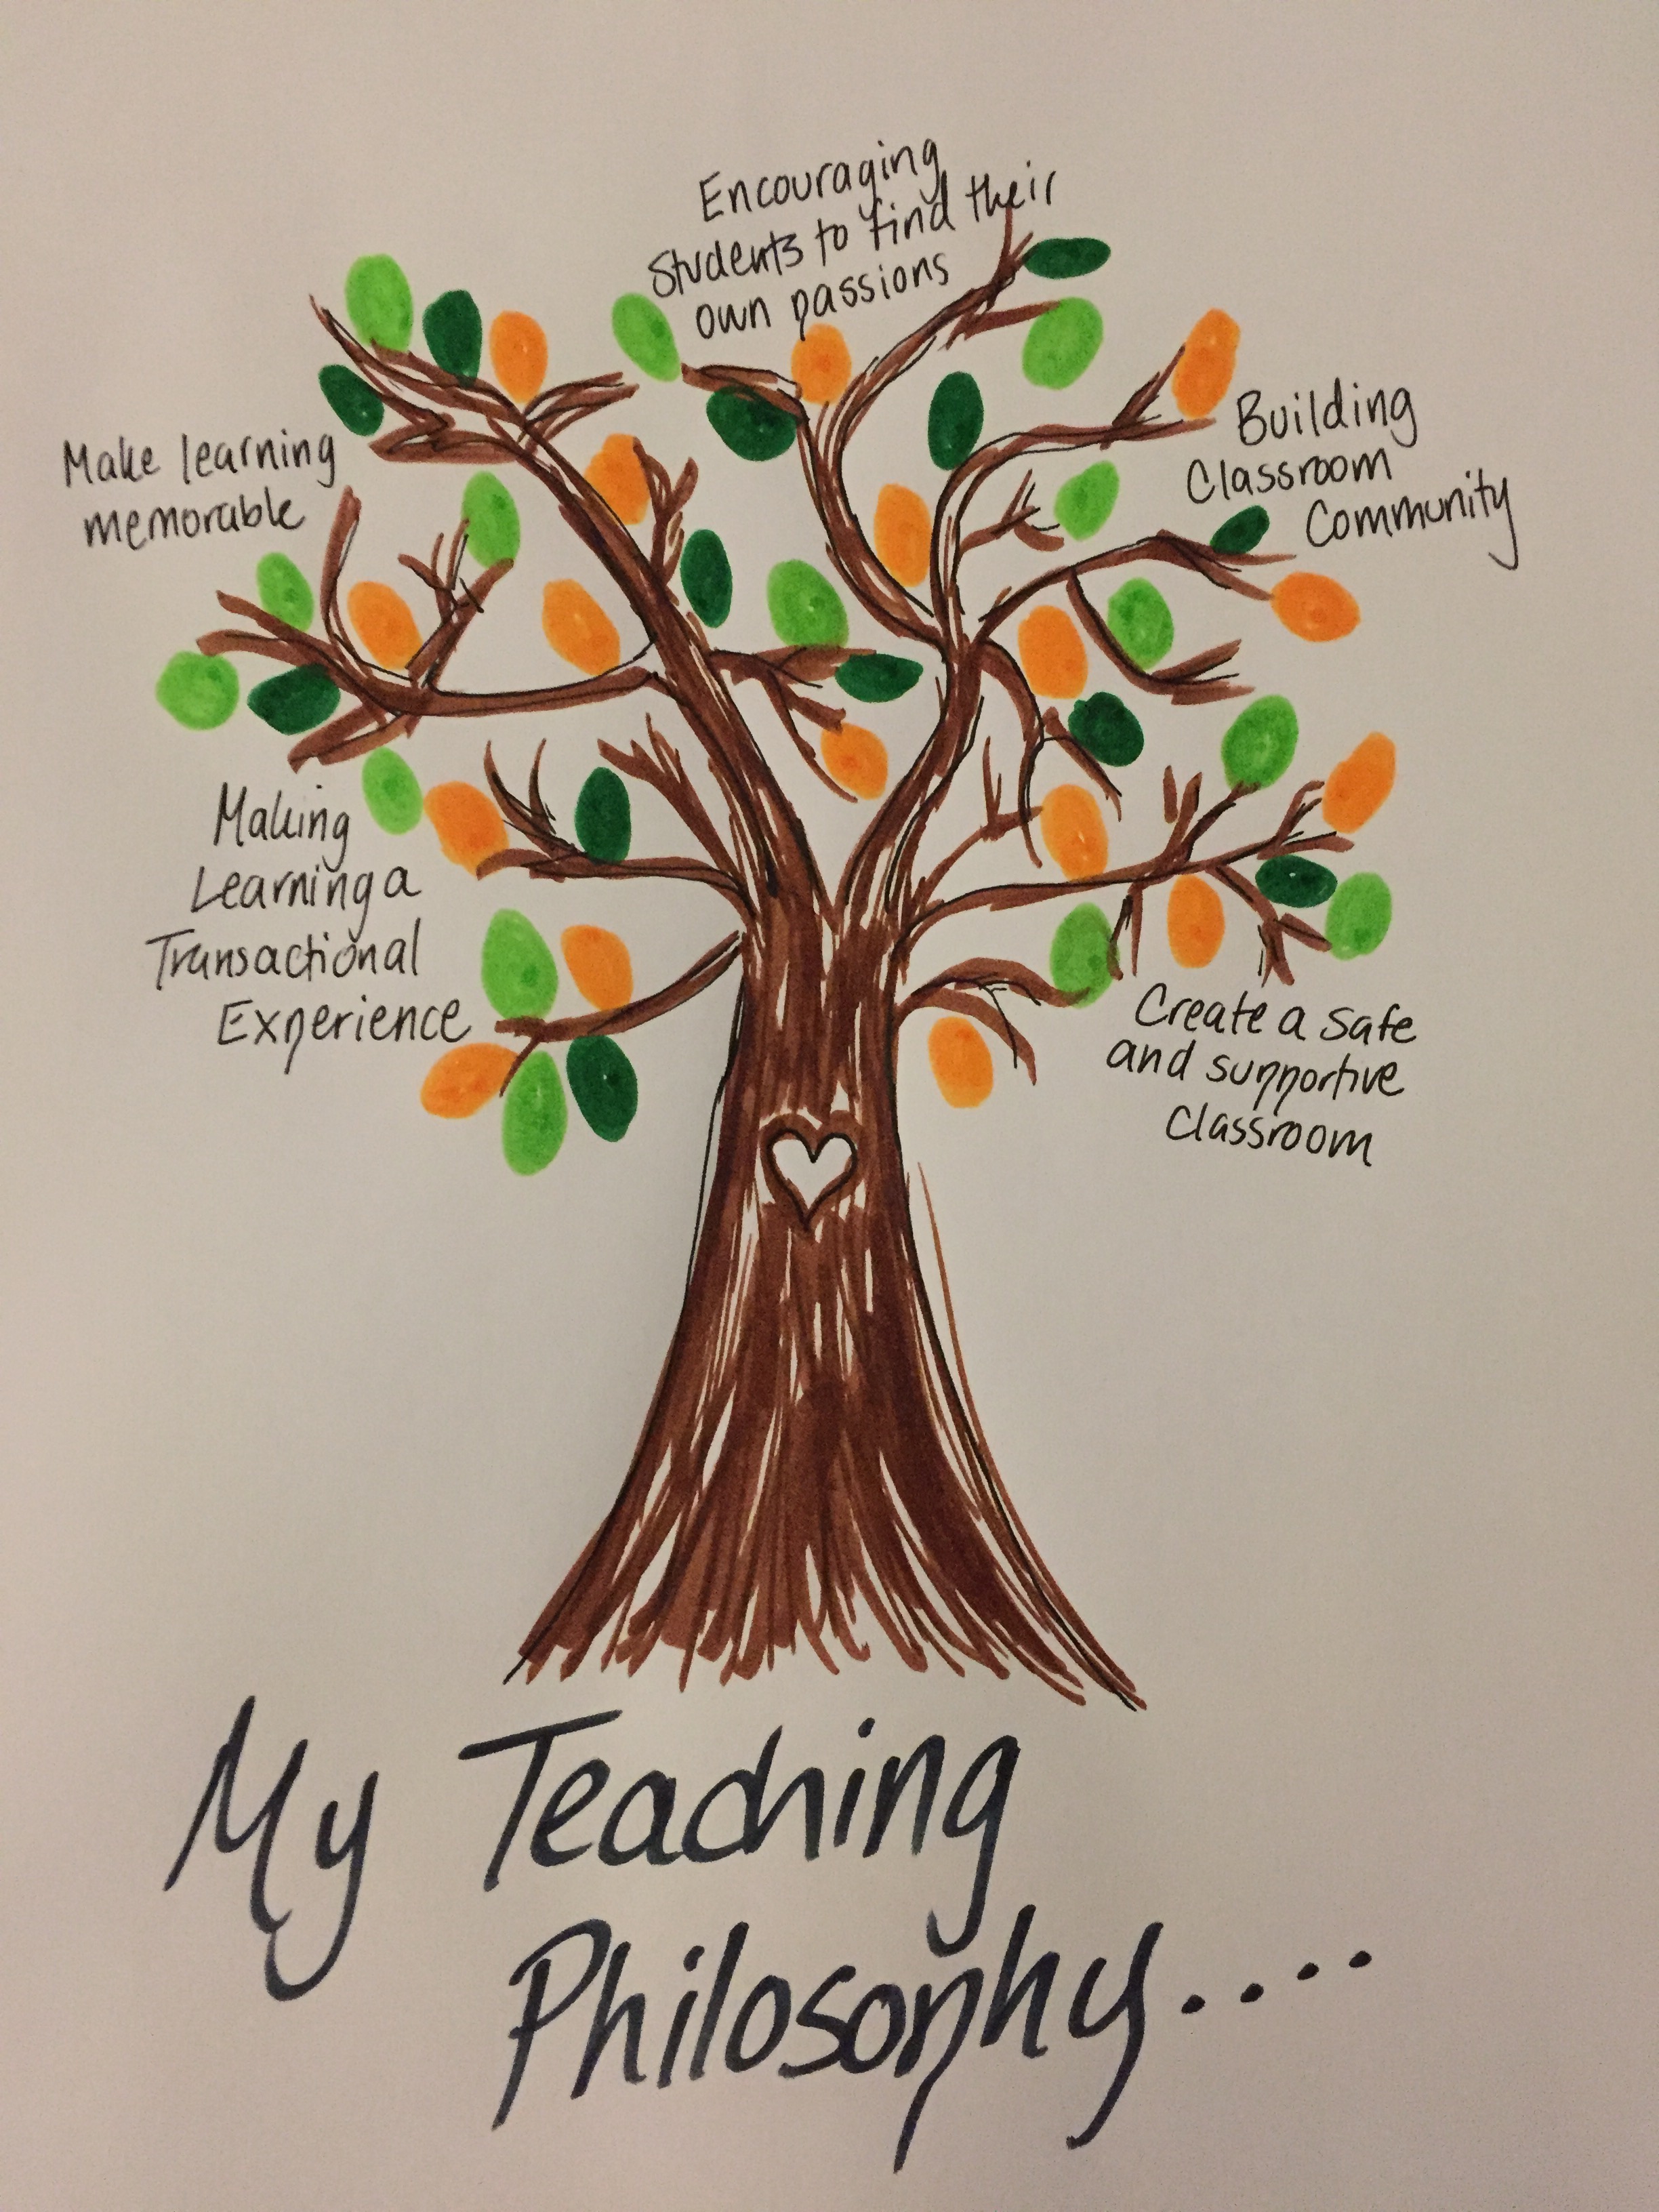 Encouraging
Students to find their
own passions
Make learning
memorable
Building
Classroom
Community
Making
Learning a
Transactional
Experience
Create a safe
and supportive
Classroom
My Teaching
Philosophy....